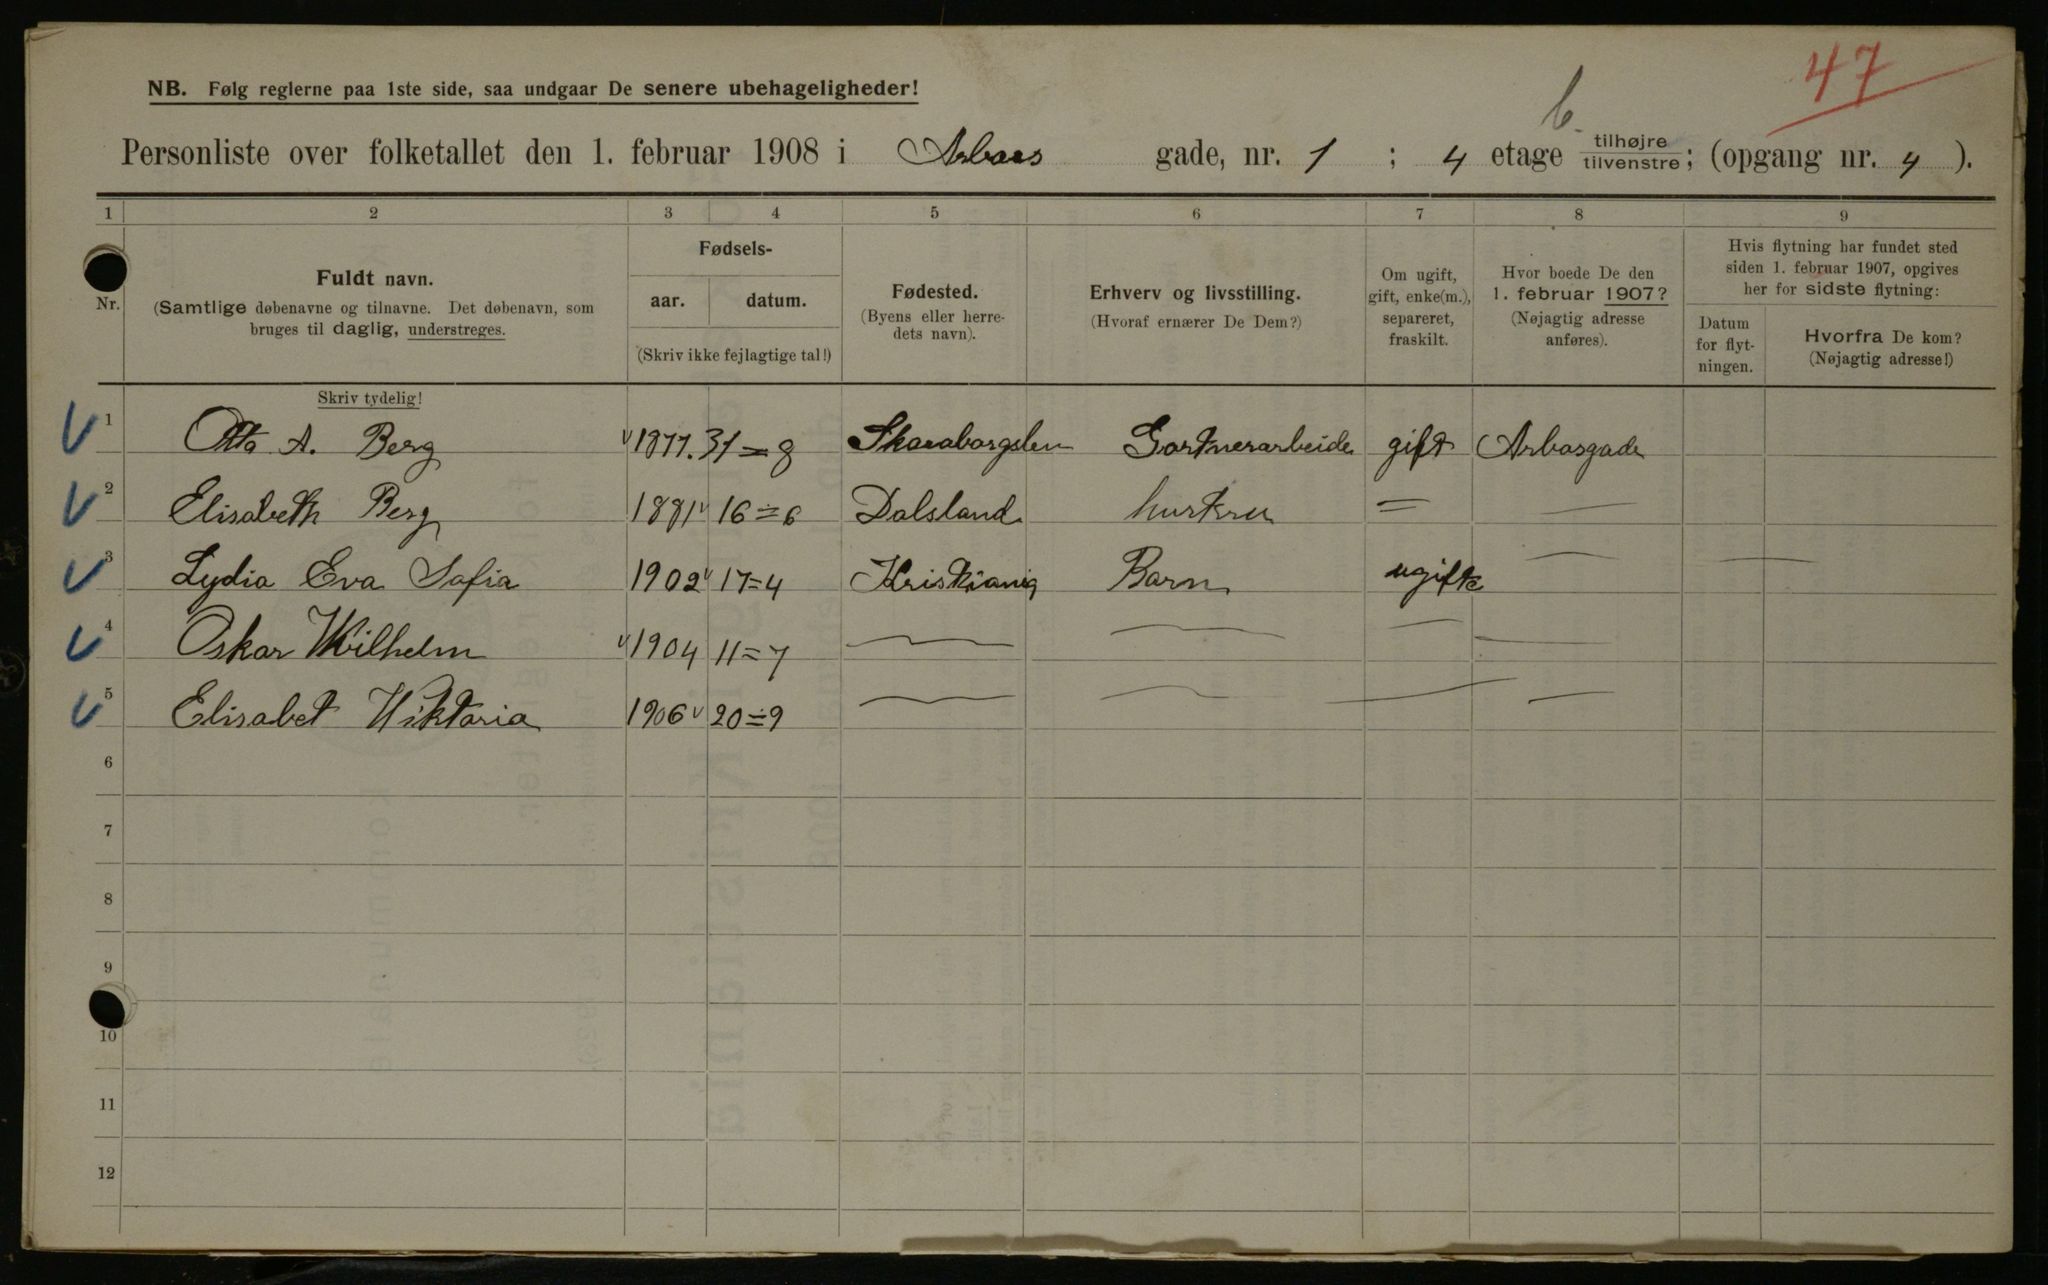 47
NB. Følg reglerne paa 1ste side, saa undgaar De senere ubehageligheder!
b.
Personliste over folketallet den 1. februar 1908 i Arboes gade, nr. 1 ; 4 etage tilhøjre/tilvenstre; (opgang nr. 4).
1 2 3 4 5 6 7 8 9
Nr.
Fuldt navn.
(Samtlige døbenavne og tilnavne. Det døbenavn, som
bruges til daglig, understreges.
Skriv tydelig!
Fødsels-
aar. datum.
(Skriv ikke fejlagtige tal!)
Fødested.
(Byens eller herre-
dets navn).
Erhverv og livsstilling.
(Hvoraf ernærer De Dem?)
Om ugift,
gift, enke(m.),
separeret,
fraskilt.
Hvor boede De den
1. februar 1907?
(Nøjagtig adresse
anføres).
Hvis flytning har fundet sted
siden 1. februar 1907, opgives
her for sidste flytning:
Datum
for flyt-
ningen.
Hvorfra De kom?
(Nøjagtig adresse!)
1 Otto A. Berg 1877. 31=8 Skaraborgslen Gartnerarbeider gift Arbosgade
2 Elisabeth Berg 1881 16=6 Dalsland hustru = —
3 Lydia Eva Sofia 1902 17=4 Kristiania Barn ugifte — —
4 Oskar Wilhelm 1904 11=7 — — — —
5 Elisabet Wiktoria 1906 20=9 — — — —
6
7
8
9
10
11
12